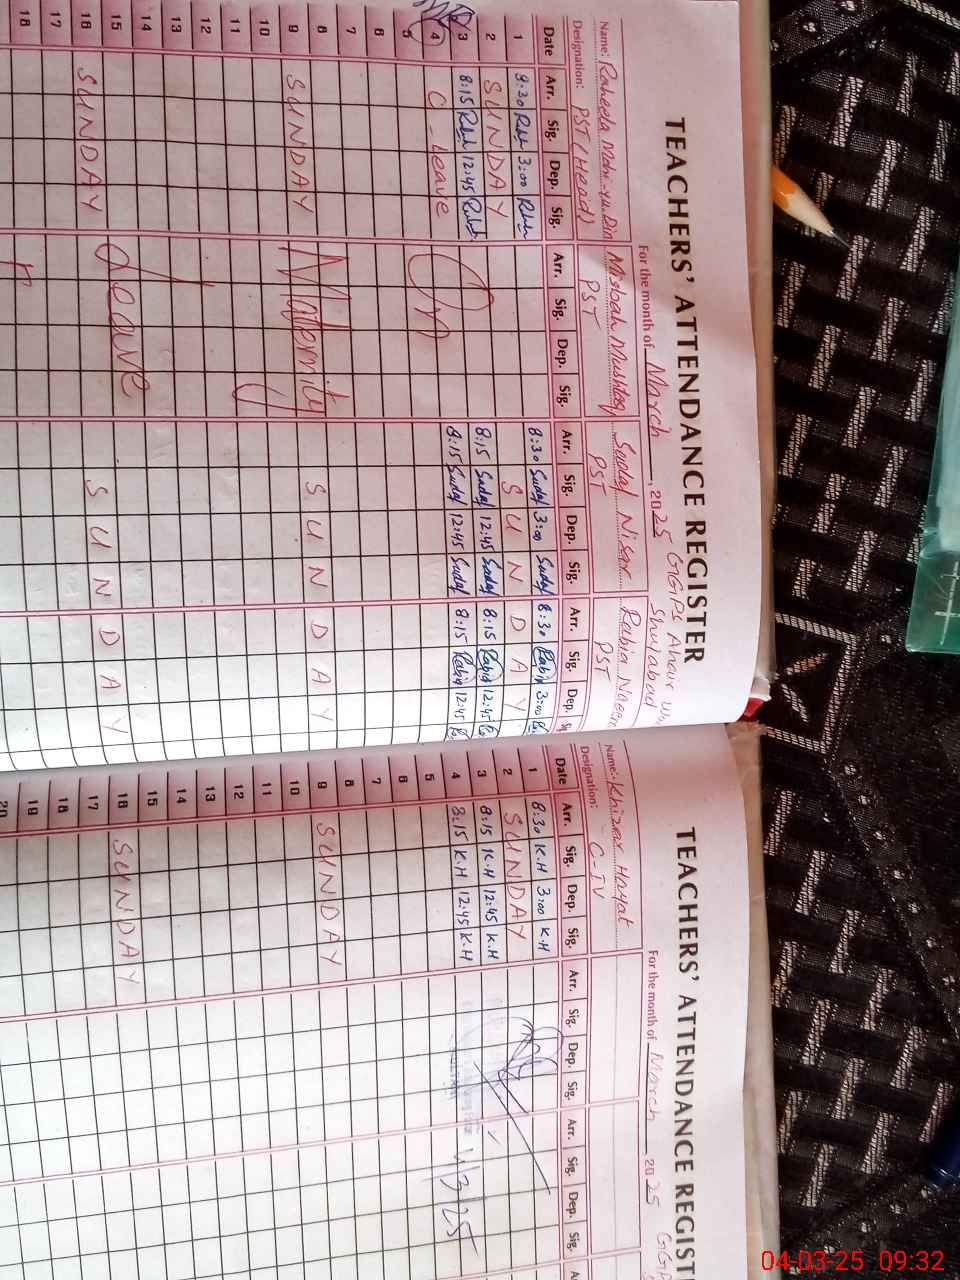 TEACHERS' ATTENDANCE REGISTER
For the month of March, 2025 GGPS Ahour
Shujabad
Name: Raheela Mohi-yu-Din Misbah Mushtaq Sadaf Nisar Rabia Naeem
Designation: PST (Head) PST PST PST
Date Arr. Sig. Dep. Sig. Arr. Sig. Dep. Sig. Arr. Sig. Dep. Sig. Arr. Sig. Dep.
1 8:30 3:00 8:30 Sadaf 3:00 Sadaf 8:30 Rabia 3:00
2 SUNDAY SUNDAY
3 8:15 12:45 8:15 Sadaf 12:45 Sadaf 8:15 Rabia 12:45
4 C-Leave On 8:15 Sadaf 12:45 Sadaf 8:15 Rabia 12:45
5
6
7
8
9 SUNDAY Maternity SUNDAY
10
11
12
13
14
15
16 SUNDAY Leave SUNDAY
17
18
TEACHERS' ATTENDANCE REGIST
For the month of March 2025 GGP
Name: Khizar Hayat
Designation: C-IV
Date Arr. Sig. Dep. Sig. Arr. Sig. Dep. Sig. Arr. Sig. Dep. Sig. Ar
1 8:30 K.H 3:00 K.H
2 SUNDAY
3 8:15 K.H 12:45 K.H
4 8:15 K.H 12:45 K.H 4/3/25
5
6
7
8
9 SUNDAY
10
11
12
13
14
15
16 SUNDAY
17
18
19
20
04-03-25 09:32